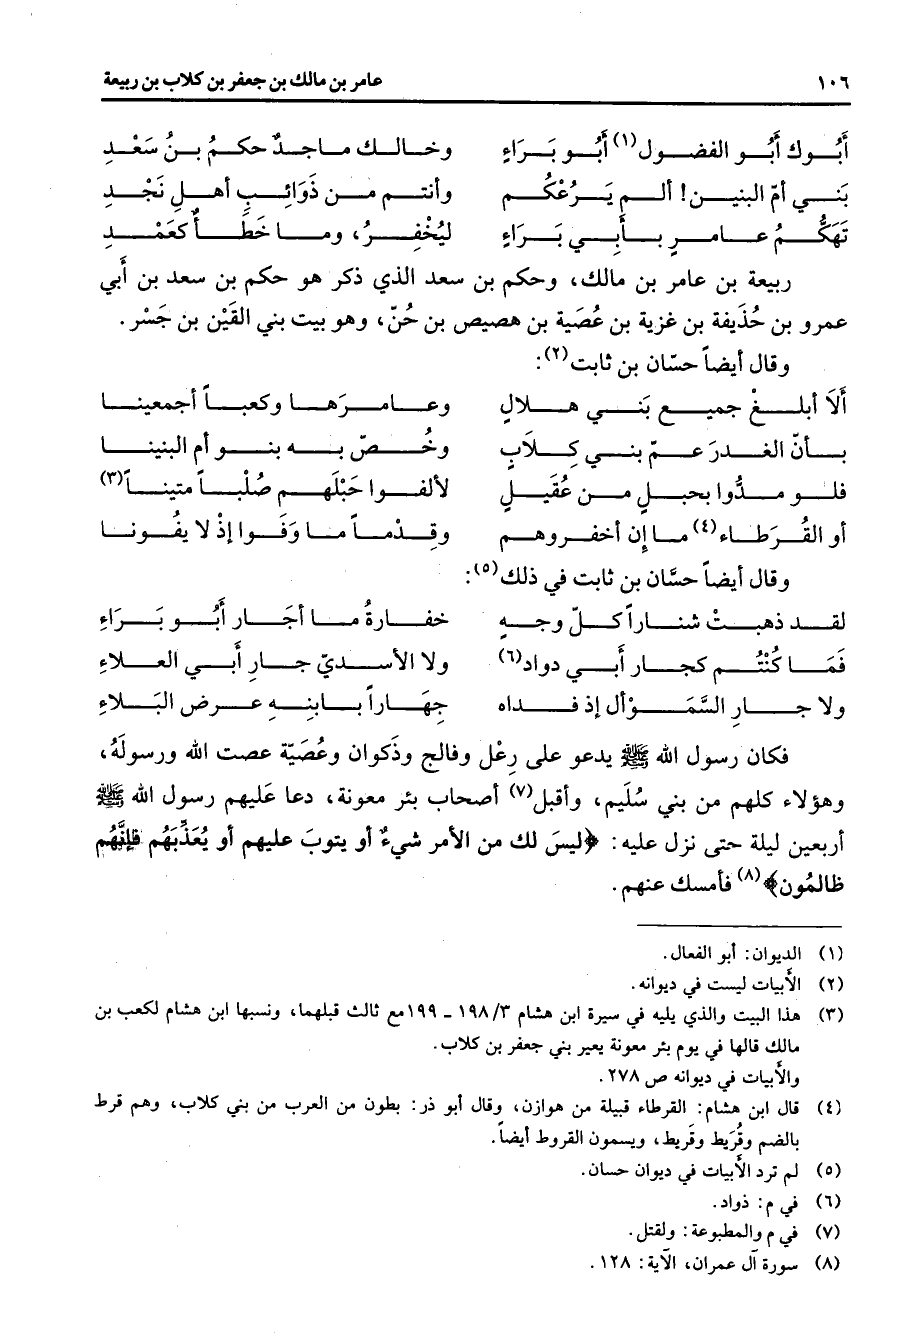 ١٠٦ عامر بن مالك بن جعفر بن كلاب بن ربيعة
أَبُوك أَبُو الفضول(١) أَبُو بَرَاءٍ وخالك ماجدٌ حكمُ بنُ سَعْدِ
بَني أمّ البنين! ألم يَرُعْكُم وأنتم من ذَوَائِبِ أهلِ نَجْدِ
تَهَكُّمُ عامرٍ بأَبي بَرَاءٍ ليُخْفِرُ، وما خَطَأٌ كعَمْدِ
ربيعة بن عامر بن مالك، وحكم بن سعد الذي ذكر هو حكم بن سعد بن أبي
عمرو بن حُذَيفة بن غزية بن عُصَية بن هصيص بن حُنّ، وهو بيت بني القَيْن بن جَسْر.
وقال أيضاً حسّان بن ثابت(٢):
ألَا أبلغْ جميع بَني هلالٍ وعامرَها وكعباً أجمعينا
بأنّ الغدرَ عمّ بني كِلَابٍ وخُصّ به بنو أم البنينا
فلو مدُّوا بحبلٍ من عُقَيلٍ لألفوا حَبْلَهم صُلْباً متيناً(٣)
أو القُرَطاء(٤) ما إن أخفروهم وقِدْماً ما وَفَوا إذْ لا يفُونا
وقال أيضاً حسَّان بن ثابت في ذلك(٥):
لقد ذهبتْ شناراً كلّ وجهٍ خفارةُ ما أجَار أَبُو بَرَاءِ
فَمَا كُنْتُم كجار أَبي دواد(٦) ولا الأسديّ جارِ أَبي العلاءِ
ولا جارِ السَّمَوْأل إذ فداه جِهَاراً بابنِهِ عرض البَلاءِ
فكان رسول الله ﷺ يدعو على رِعْل وفالج وذَكوان وعُصَيّة عصت الله ورسولَهُ،
وهؤلاء كلهم من بني سُلَيم، وأقبل(٧) أصحاب بئر معونة، دعا عَليهم رسول الله ﷺ
أربعين ليلة حتى نزل عليه: ﴿ليسَ لك من الأمر شيءٌ أو يتوبَ عليهم أو يُعَذِّبَهُم فإنَّهُم
ظالمُون﴾(٨) فأمسك عنهم.
(١) الديوان: أبو الفعال.
(٢) الأبيات ليست في ديوانه.
(٣) هذا البيت والذي يليه في سيرة ابن هشام ٣/ ١٩٨ ـ ١٩٩ مع ثالث قبلهما، ونسبها ابن هشام لكعب بن
مالك قالها في يوم بئر معونة يعير بني جعفر بن كلاب.
والأبيات في ديوانه ص ٢٧٨.
(٤) قال ابن هشام: القرطاء قبيلة من هوازن، وقال أبو ذر: بطون من العرب من بني كلاب، وهم قرط
بالضم وقُرَيط وقَريط، ويسمون القروط أيضاً.
(٥) لم ترد الأبيات في ديوان حسان.
(٦) في م: ذواد.
(٧) في م والمطبوعة: ولقتل.
(٨) سورة آل عمران، الآية: ١٢٨.